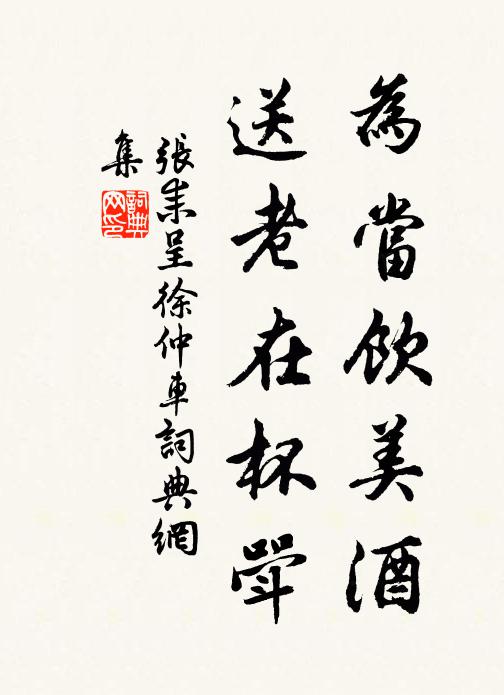 為當飲美酒
送老在杯斝
張耒呈徐仲車詞典網
集
詞典
网印